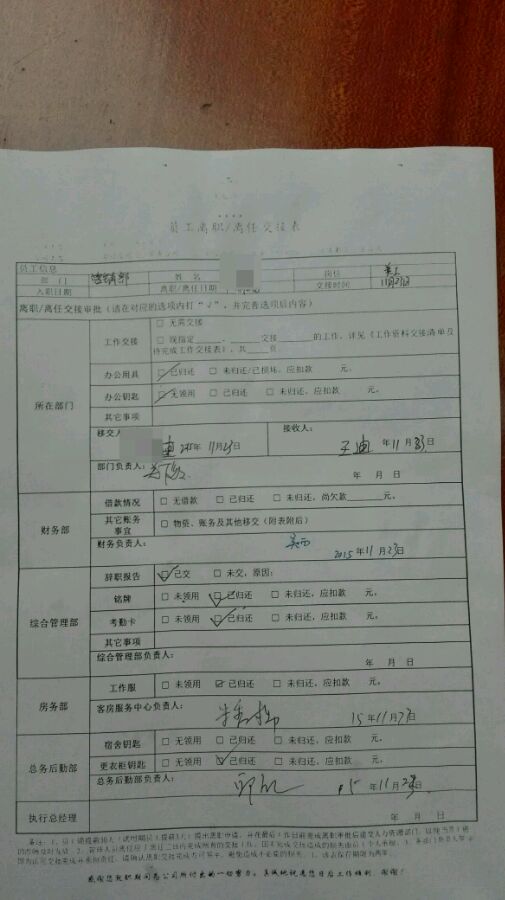 员工离职/离任交接表
员工信息
部 门 姓 名 岗位 员工
入职日期 离职/离任日期 交接时间 11月23日
离职/离任交接审批(请在对应的选项内打“√”,并完善选项后内容)
所在部门
工作交接 □ 无需交接
□ 现指定_____,_____交接_____的工作,详见《工作资料交接清单及待完成工作交接表》,共____页
办公用具 □ 已归还 □ 未归还/已损坏,应扣款 元。
办公钥匙 □ 无领用 □ 已归还 □ 未归还,应扣款 元。
其它事项
移交人 2015年11月23日 接收人: 王迪 年11月23日
部门负责人: 年 月 日
财务部
借款情况 □ 无借款 □ 已归还 □ 未归还,尚欠款______元。
其它账务事宜 □ 物资、账务及其他移交(附表附后)
财务负责人: 2015年11月23日
综合管理部
辞职报告 ☑ 已交 □ 未交,原因:
铭牌 □ 未领用 ☑ 已归还 □ 未归还,应扣款 元。
考勤卡 □ 未领用 ☑ 已归还 □ 未归还,应扣款 元。
其它事项
综合管理部负责人: 年 月 日
房务部
工作服 □ 未领用 ☑ 已归还 □ 未归还,应扣款 元。
客房服务中心负责人: 15年11月23日
总务后勤部
宿舍钥匙 □ 无领用 □ 已归还 □ 未归还,应扣款 元。
更衣柜钥匙 □ 无领用 ☑ 已归还 □ 未归还,应扣款 元。
总务后勤部负责人: 15年11月23日
执行总经理 年 月 日
感谢您在职期间为公司所付出的一切努力,真诚地祝愿您日后工作顺利,谢谢!